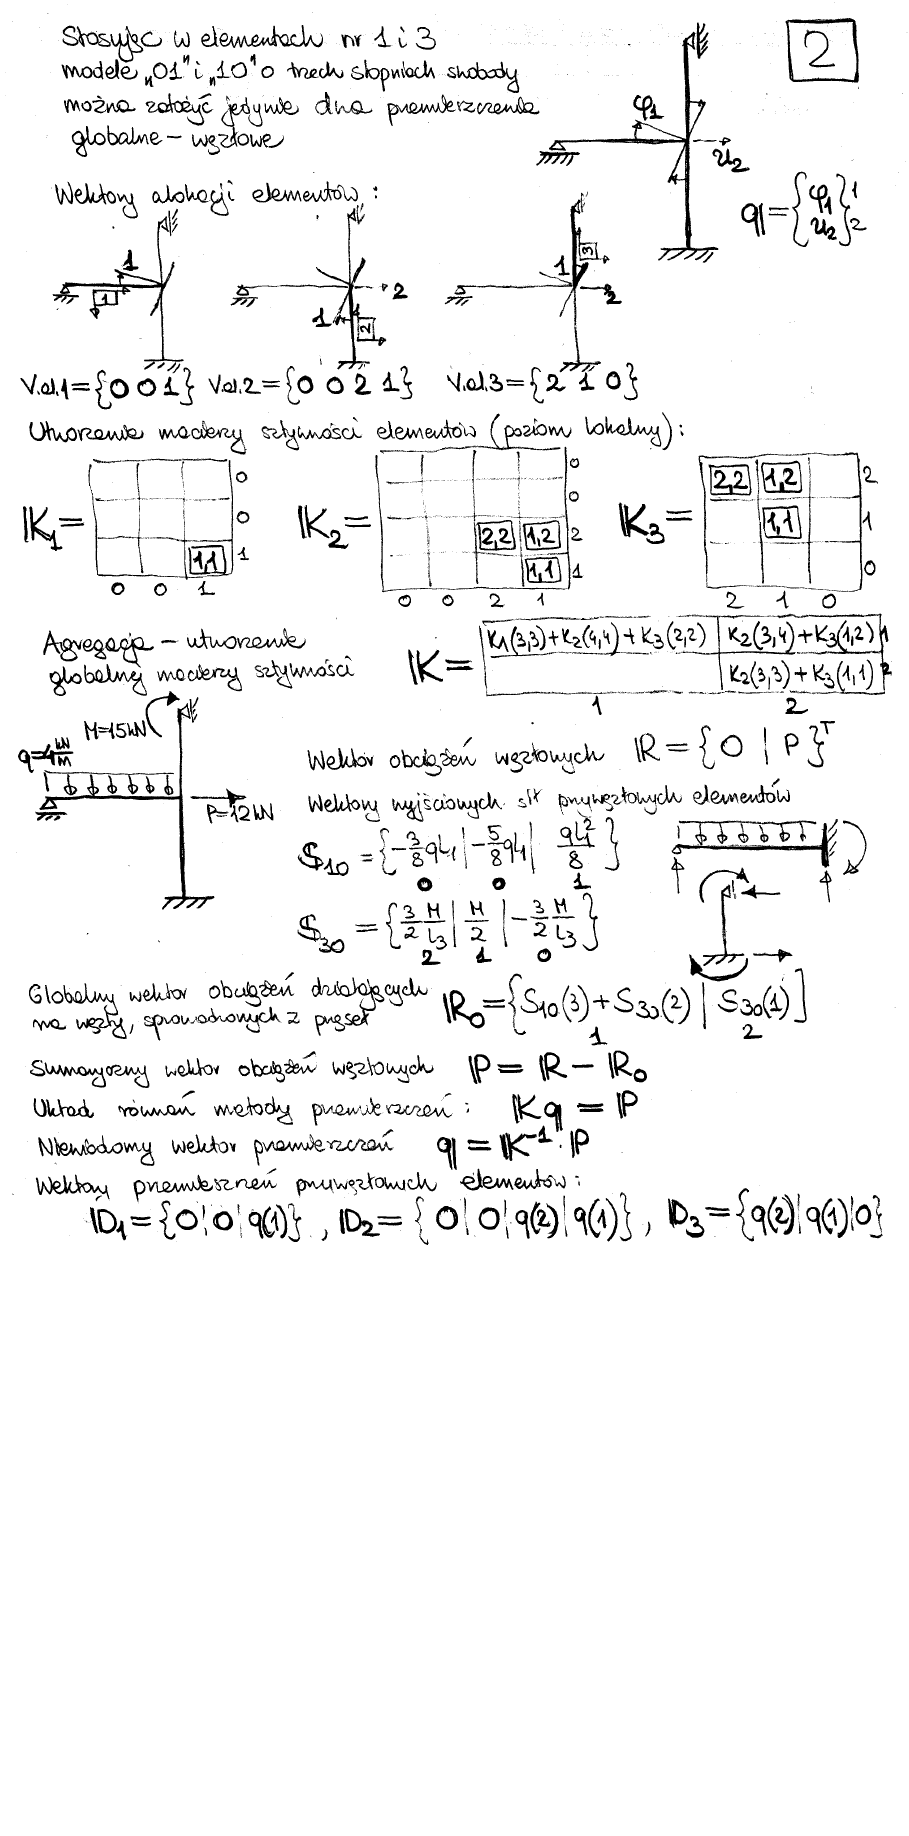 2
Stosując w elementach nr 1 i 3
modele „01" i „10" o trzech stopniach swobody
można założyć jedynie dwa przemieszczenia
globalne – węzłowe
φ1
u2
q = {φ1 u2} 1 2
Wektory alokacji elementów :
1 1
2 1 2
1 3 2
V.al.1 = {0 0 1} V.al.2 = {0 0 2 1} V.al.3 = {2 1 0}
Utworzenie macierzy sztywności elementów (poziom lokalny) :
K1 =
1,1
0 0 1
0 0 1
K2 =
2,2 1,2
1,1
0 0 2 1
0 0 2 1
K3 =
2,2 1,2
1,1
2 1 0
2 1 0
Agregacja – utworzenie
globalnej macierzy sztywności
K =
K1(3,3)+K2(4,4)+K3(2,2) K2(3,4)+K3(1,2) 1
K2(3,3)+K3(1,1) 2
1 2
M=15kN
q=4 kN/m
P=12kN
Wektor obciążeń węzłowych R = {0 | P}T
Wektory wyjściowych sił przywęzłowych elementów
S10 = {-3/8 qL1 | -5/8 qL1 | qL1²/8}
0 0 1
S30 = {3/2 M/L3 | M/2 | -3/2 M/L3}
2 1 0
Globalny wektor obciążeń działających
na węzły, sprowadzonych z przęseł
R0 = {S10(3)+S30(2) | S30(1)]
1 2
Sumaryczny wektor obciążeń węzłowych P = R – R0
Układ równań metody przemieszczeń : Kq = P
Niewiadomy wektor przemieszczeń q = K-1·P
Wektory przemieszczeń przywęzłowych elementów :
D1 = {0¦0¦q(1)} , D2 = {0¦0¦q(2)¦q(1)} , D3 = {q(2)¦q(1)¦0}